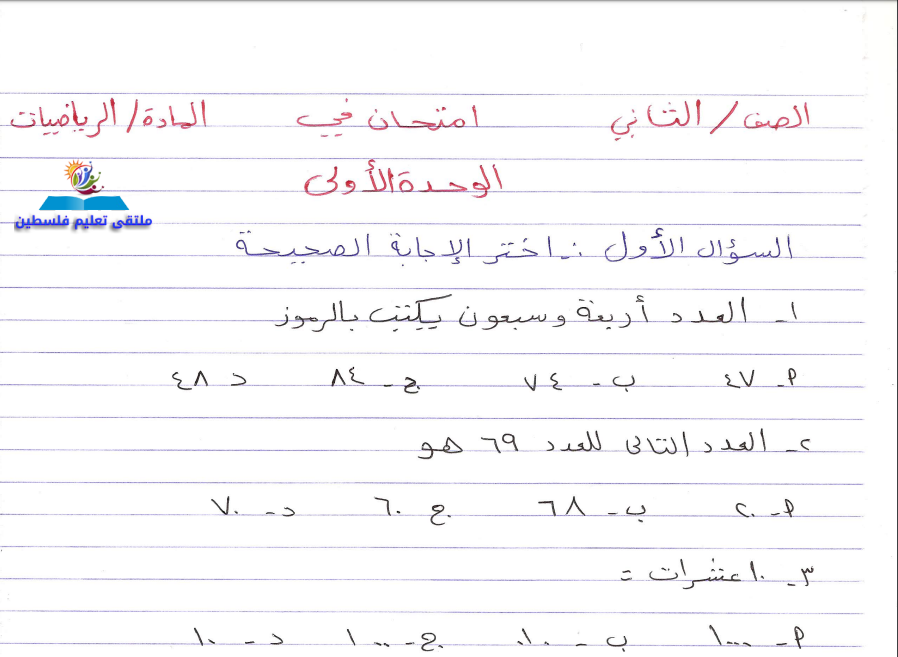 الصف / الثاني امتحان في المادة / الرياضيات
الوحدة الأولى
ملتقى تعليم فلسطين
السؤال الأول :- اختر الإجابة الصحيحة
١- العدد أربعة وسبعون يكتب بالرموز
أ- ٤٧ ب- ٧٤ ج- ٨٤ د ٤٨
٢- العدد التالي للعدد ٦٩ هو
أ- ٢٠ ب- ٦٨ ج ٦٠ د- ٧٠
٣- ١٠ عشرات =
أ- ١٠٠٠ ب- ٠١٠ ج- ١٠٠ د- ١٠